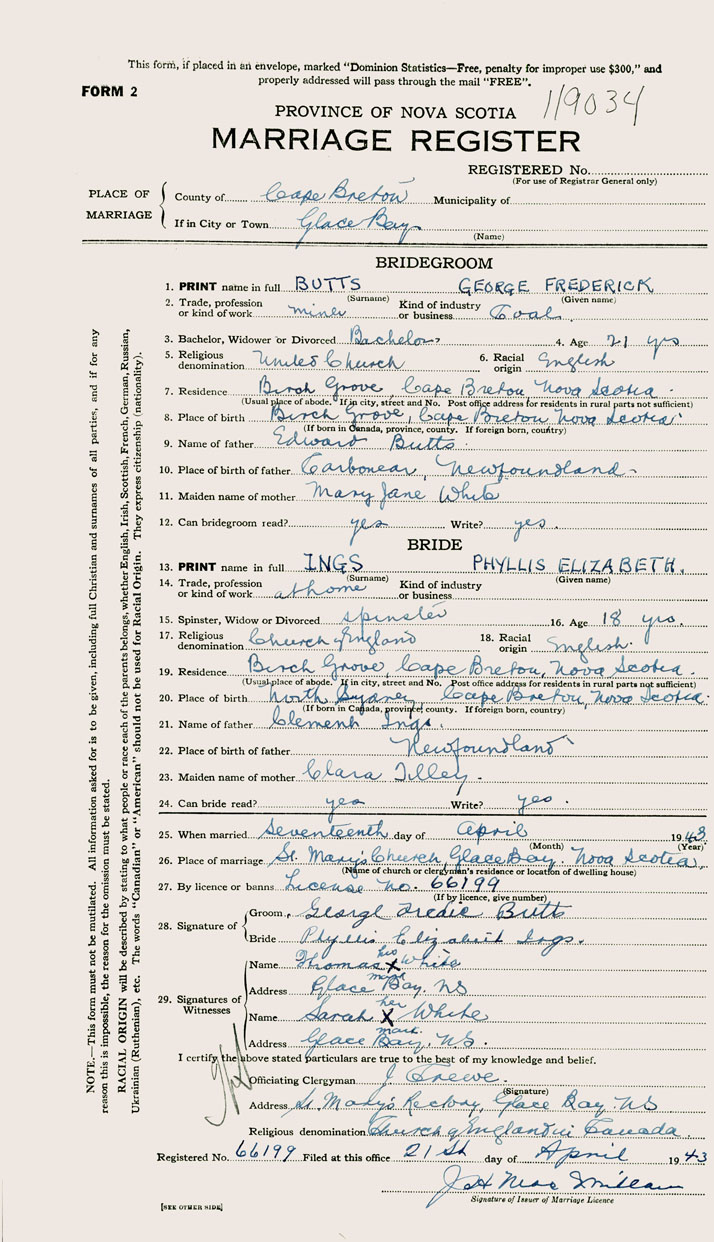 This form, if placed in an envelope, marked "Dominion Statistics—Free, penalty for improper use $300," and
properly addressed will pass through the mail "FREE".
FORM 2
119034
PROVINCE OF NOVA SCOTIA
MARRIAGE REGISTER
REGISTERED No.
(For use of Registrar General only)
PLACE OF MARRIAGE
County of Cape Breton Municipality of
If in City or Town Glace Bay
(Name)
BRIDEGROOM
1. PRINT name in full BUTTS GEORGE FREDERICK
(Surname) (Given name)
2. Trade, profession or kind of work miner Kind of industry or business Coal
3. Bachelor, Widower or Divorced Bachelor 4. Age 21 yrs
5. Religious denomination United Church 6. Racial origin English
7. Residence Birch Grove Cape Breton Nova Scotia.
(Usual place of abode. If in city, street and No. Post office address for residents in rural parts not sufficient)
8. Place of birth Birch Grove, Cape Breton Nova Scotia
(If born in Canada, province, county. If foreign born, country)
9. Name of father Edward Butts.
10. Place of birth of father Carbonear, Newfoundland.
11. Maiden name of mother Mary Jane White
12. Can bridegroom read? yes Write? yes.
BRIDE
13. PRINT name in full INGS PHYLLIS ELIZABETH.
(Surname) (Given name)
14. Trade, profession or kind of work at home Kind of industry or business
15. Spinster, Widow or Divorced spinster 16. Age 18 yrs.
17. Religious denomination Church of England 18. Racial origin English.
19. Residence Birch Grove Cape Breton, Nova Scotia.
(Usual place of abode. If in city, street and No. Post office address for residents in rural parts not sufficient)
20. Place of birth North Sydney, Cape Breton, Nova Scotia.
(If born in Canada, province, county. If foreign born, country)
21. Name of father Clement Ings.
22. Place of birth of father Newfoundland
23. Maiden name of mother Clara Tilley.
24. Can bride read? yes Write? yes.
25. When married Seventeenth day of April 1943
(Month) (Year)
26. Place of marriage St. Mary's Church, Glace Bay. Nova Scotia.
(Name of church or clergyman's residence or location of dwelling house)
27. By licence or banns License No. 66199
(If by licence, give number)
28. Signature of
Groom George Fredic Butts
Bride Phyllis Elizabeth Ings.
29. Signatures of Witnesses
Name Thomas his X mark White
Address Glace Bay. NS
Name Sarah her X mark White
Address Glace Bay, N.S.
I certify the above stated particulars are true to the best of my knowledge and belief.
Officiating Clergyman
(Signature)
Address St. Mary's Rectory, Glace Bay. NS
Religious denomination Church of England in Canada.
Registered No. 66199 Filed at this office 21st day of April 1943
Signature of Issuer of Marriage Licence
[SEE OTHER SIDE]
NOTE.—This form must not be mutilated. All information asked for is to be given, including full Christian and surnames of all parties, and if for any
reason this is impossible, the reason for the omission must be stated.
RACIAL ORIGIN will be described by stating to what people or race each of the parents belongs, whether English, Irish, Scottish, French, German, Russian,
Ukrainian (Ruthenian), etc. The words "Canadian" or "American" should not be used for Racial Origin. They express citizenship (nationality).